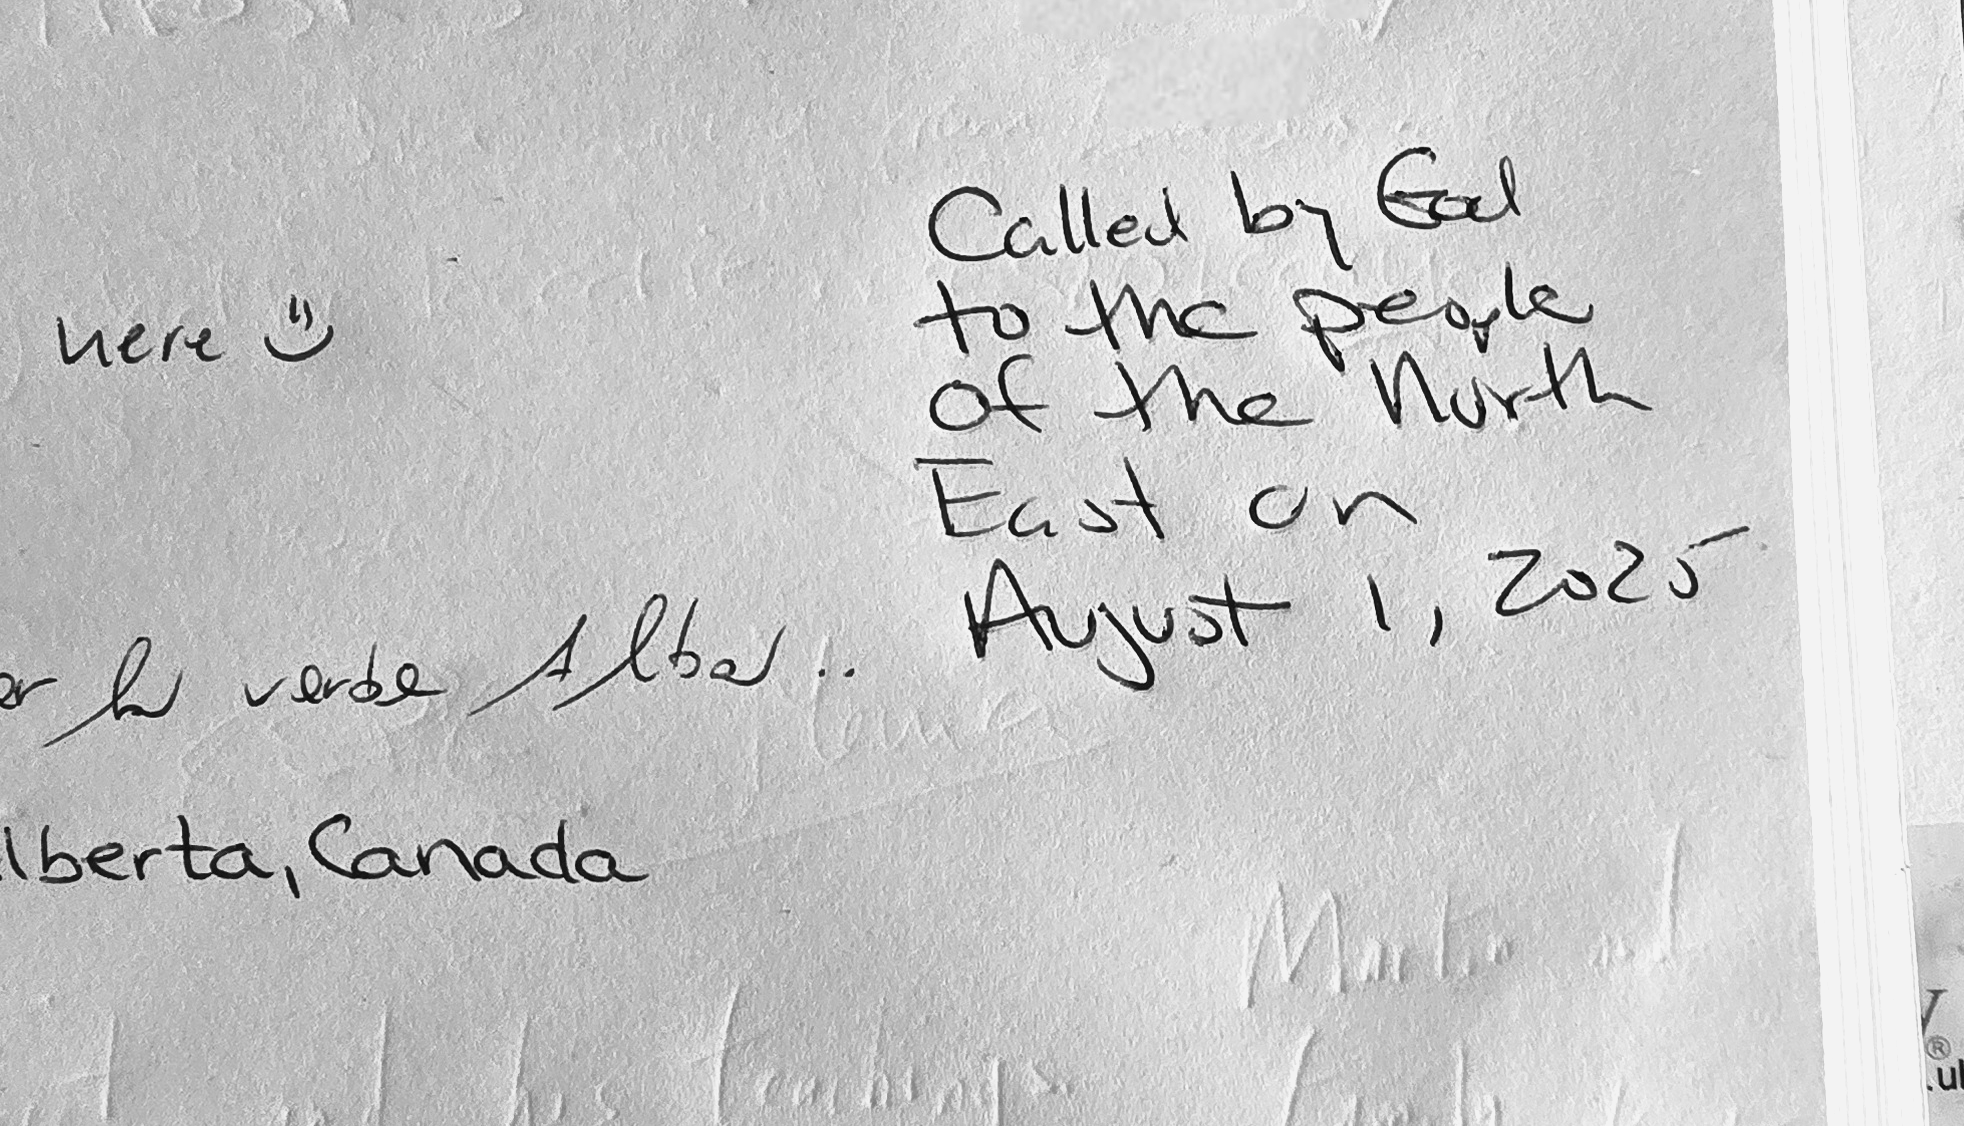 here
Called by God
to the people
of the North
East on
August 1, 2025
verde Alba...
lberta, Canada